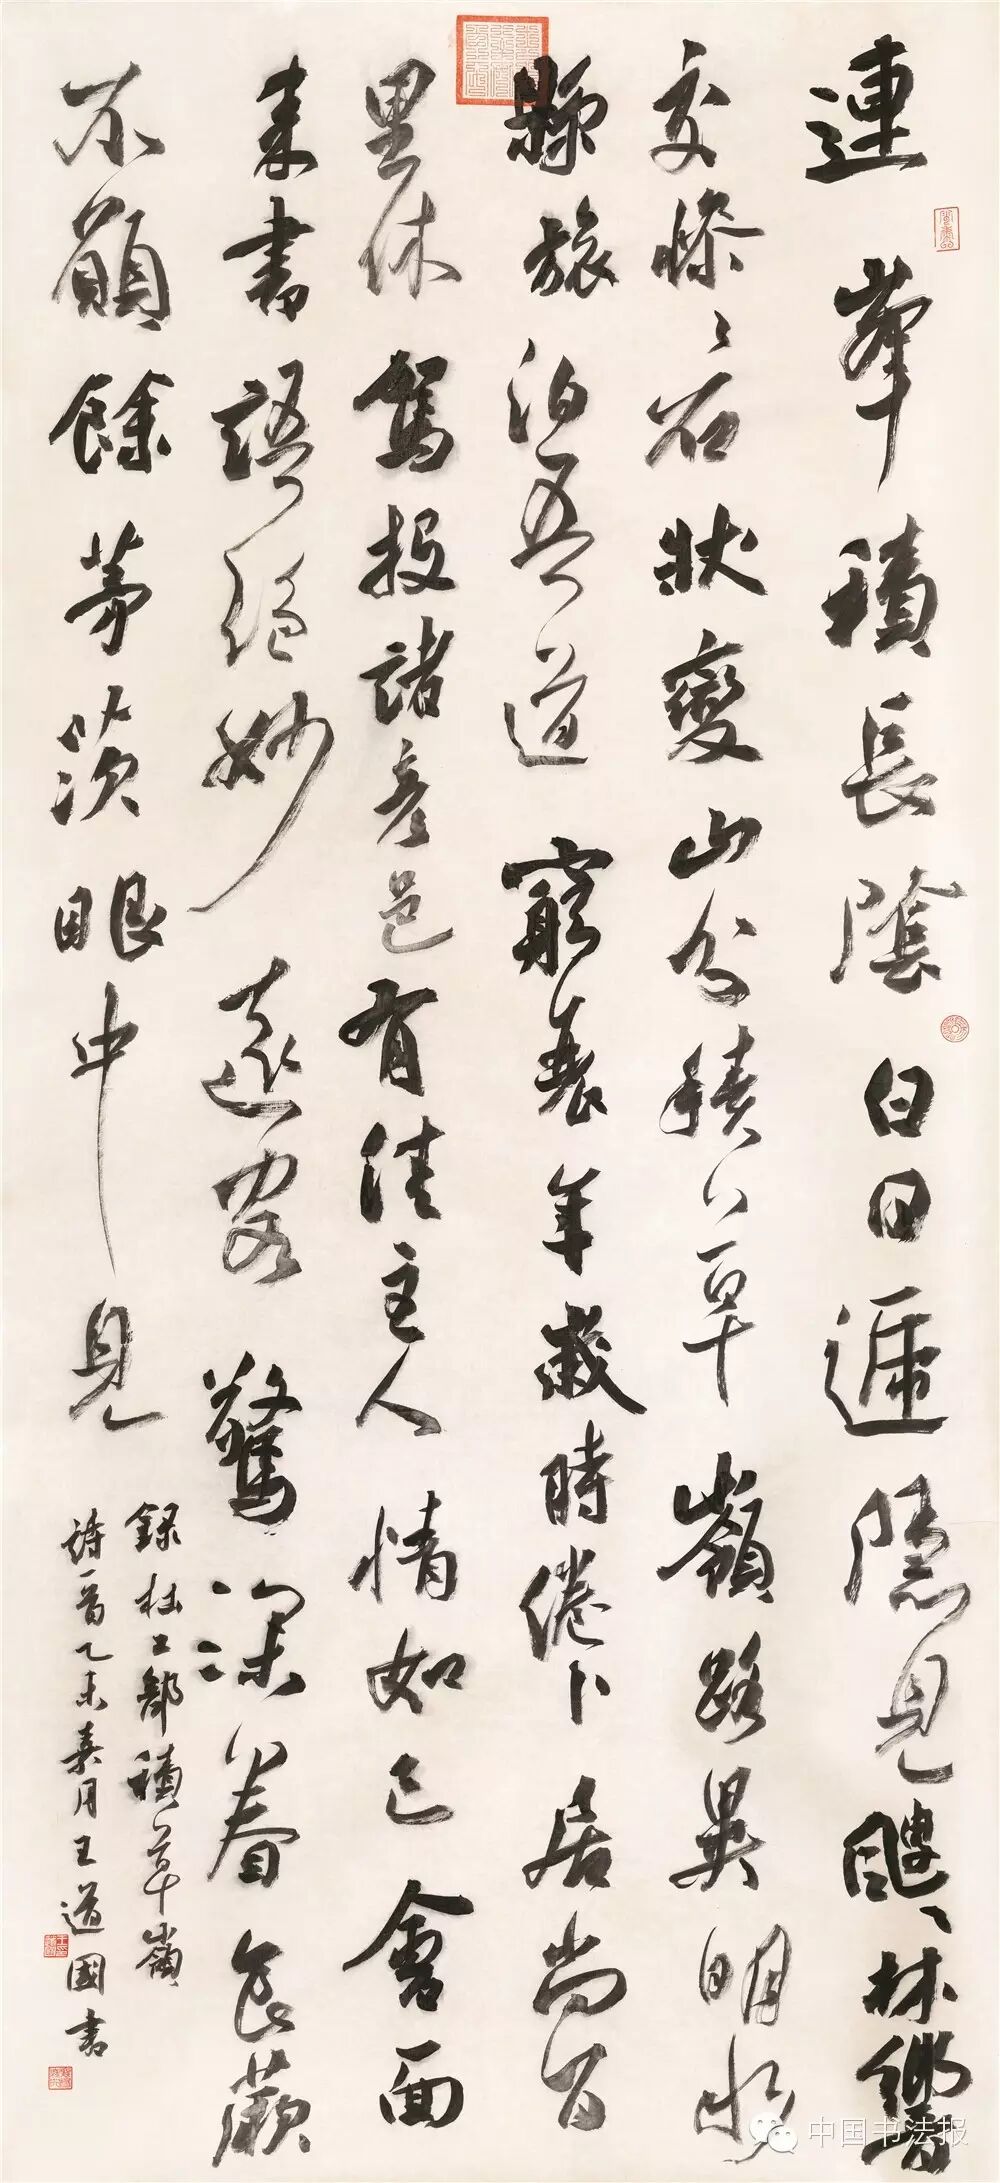 連峯積長陰白日遞隱見颼颼林響
交慘慘石狀變山分積草嶺路異明水
縣旅泊吾道窮衰年歲時倦卜居尚百
里休駕投諸彥邑有佳主人情如已會面
來書語絕妙遠客驚深眷食蕨
不願餘茅茨眼中見
錄杜工部積草嶺
詩一首乙未嘉月王道國書
中国书法报